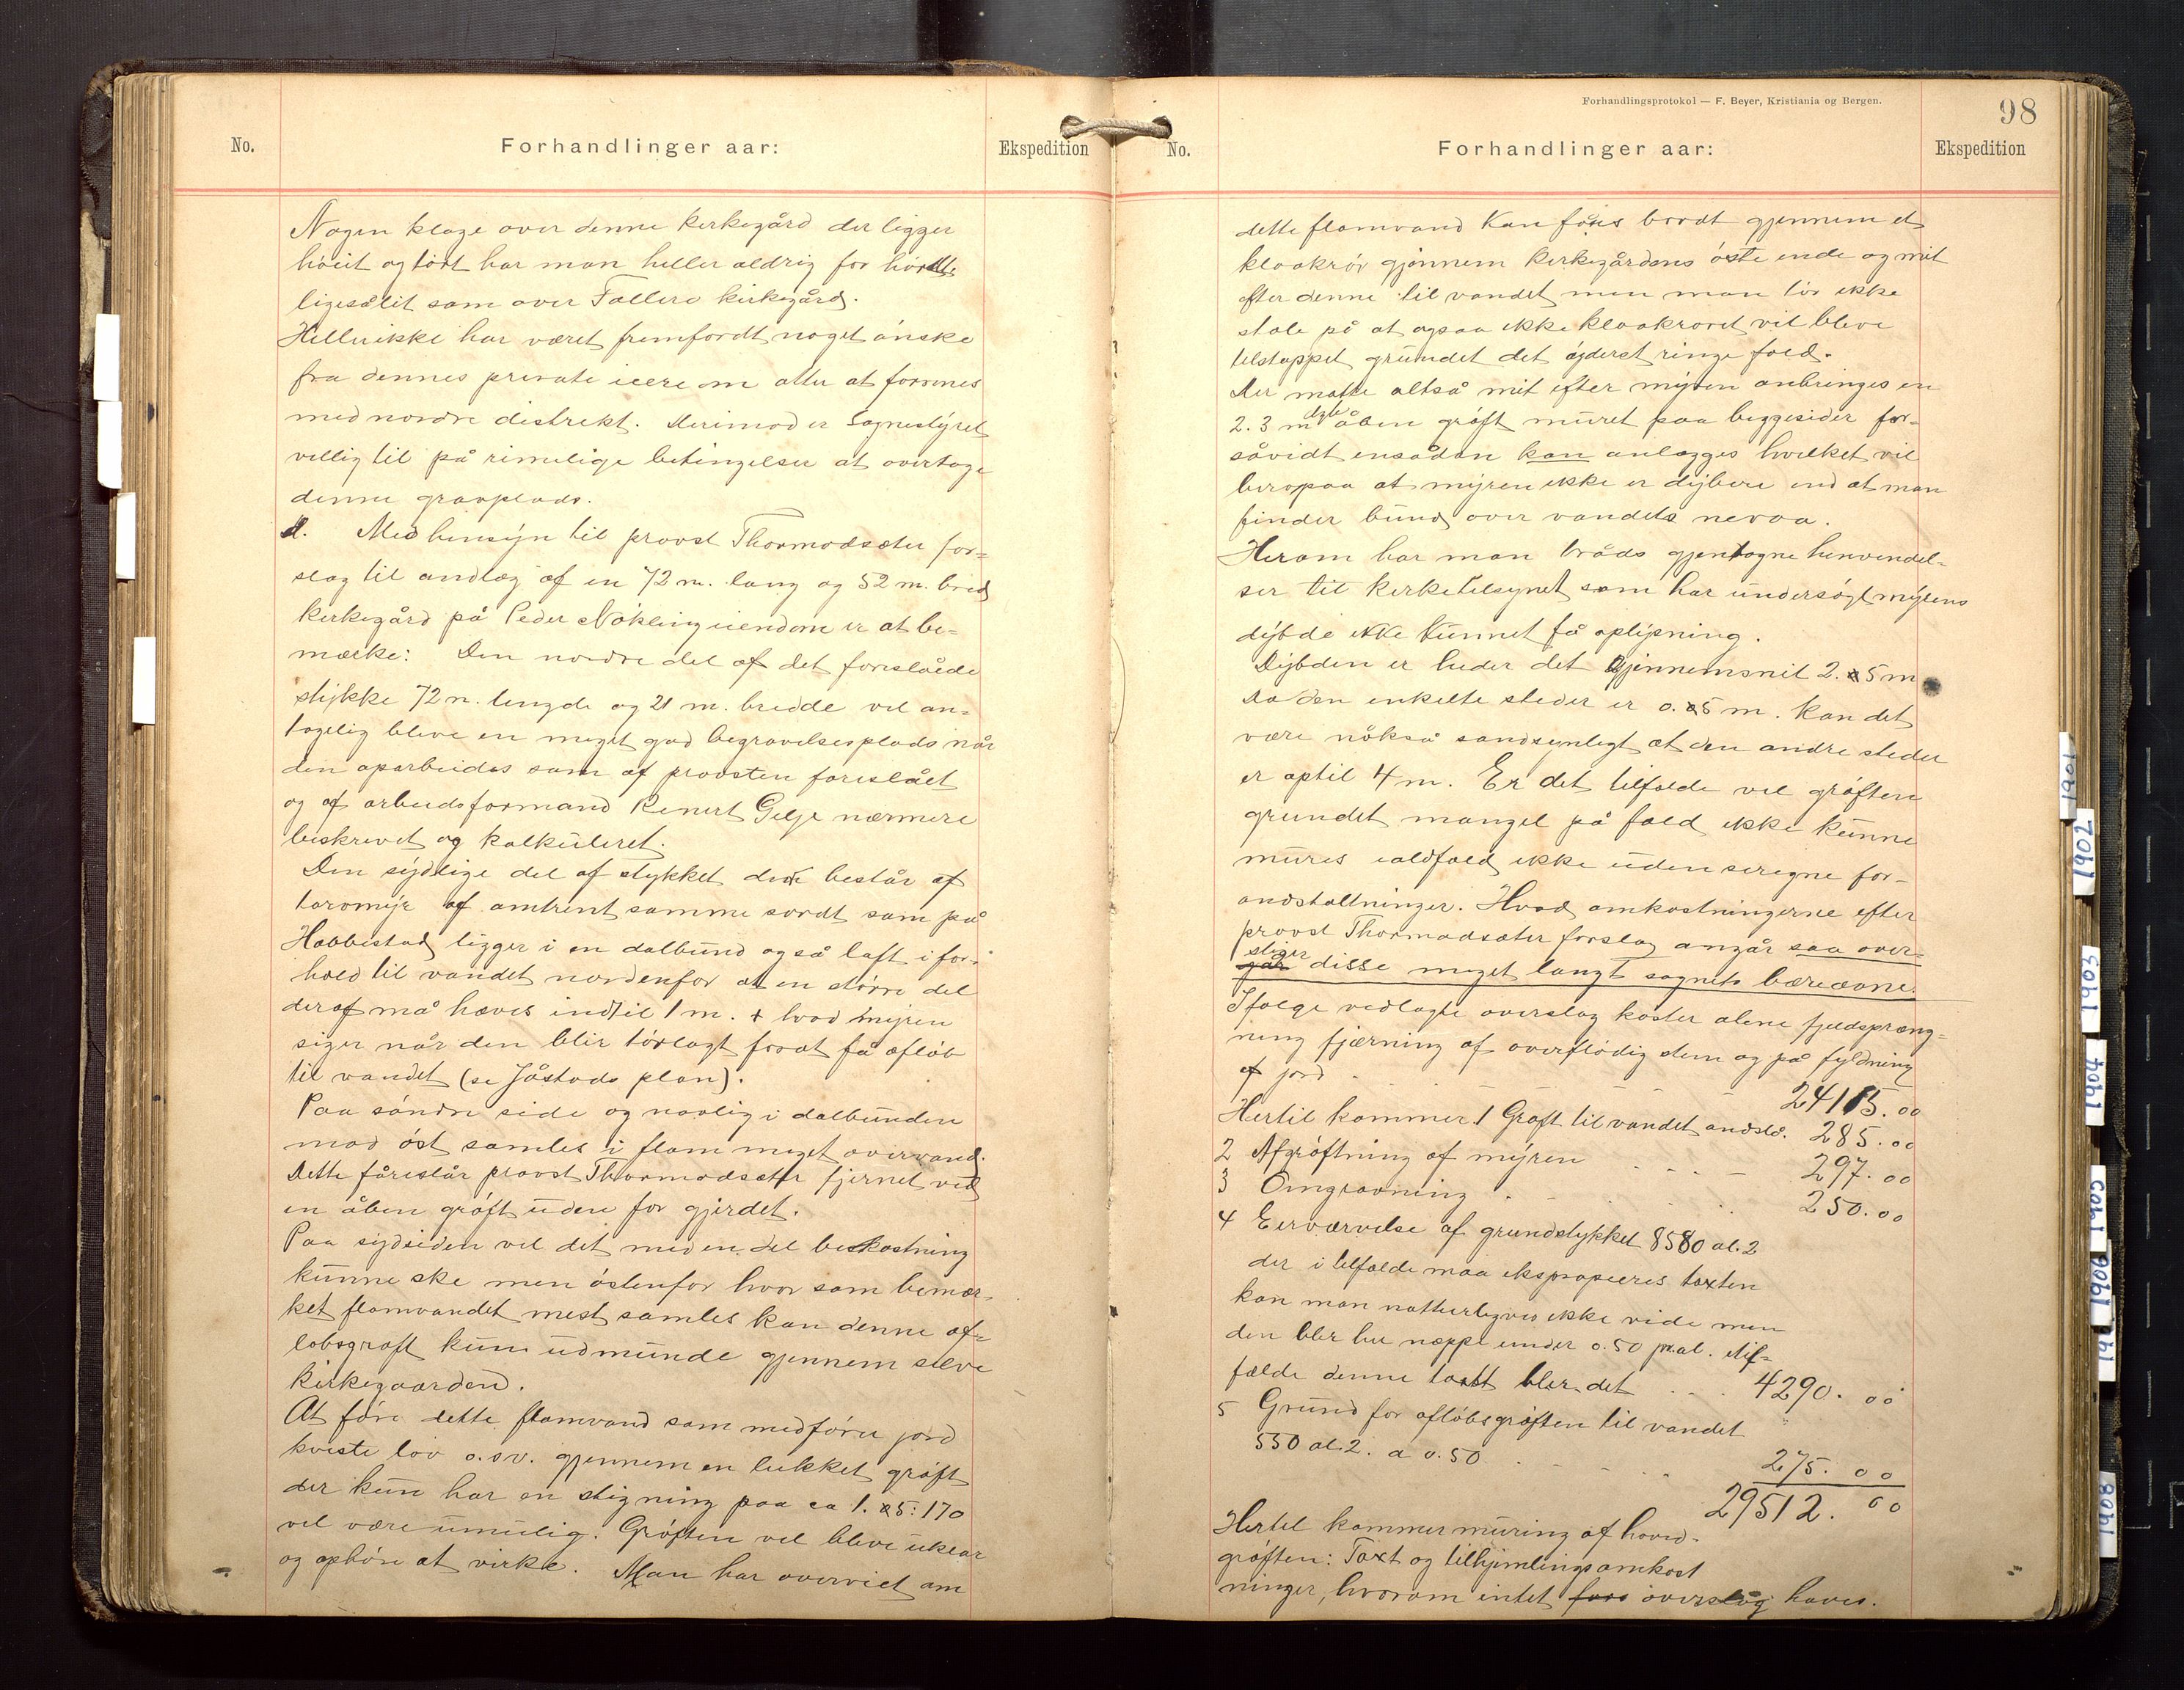 No.
Forhandlinger aar:
Ekspedition
Nogen klage over denne kirkegård der ligger
höiit og tört har man heller aldrig for
ligesålit som over Follero kirkegård.
Hellerikke har været fremfordt noget önske
fra dennes private eiere om atter at forenes
med nordre distrekt. Derimod er Sognestyret
vellig til på rimelige betingelser at overtage
denne gravplads.
d. Med hensyn til provst Thormodsæter for=
slag til andlæg af en 72 m. lang og 52 m. bred
kirkegård på Peder Nökling eiendom er at be=
mærke: Den nordre del af det foreslåede
stykke 72 m. lengde og 21 m. bredde vel an=
tagelig bleve en meget god begravelsesplads når
den oparbeides som af provsten foreslået
og af arbeidsformand Renert Gelje nærmere
beskrevet og kalkuleret.
Den sydlige del af stykket der består af
torvmyr af omtrent samme sordt som på
Hobbestad ligger i en dalbund også laft i for=
hold til vandet nordenfor at en större del
deraf må hæves indtil 1 m. + hvad myren
siger når den blir törlagt forat få aflöb
til vandet (se Jåstads plan).
Paa söndre side og navlig i dalbunden
mod öst samles i flom meget overvand.
Dette föreslår provst Thormodsæter fjernet ved
en åben gröft uden for gjerdet.
Paa sydsiden vel det med en del beskostning
kunne ske men östenfor hvor som bemær=
ket flomvandet mest samles kan denne af=
löbsgröft kun udmunde gjennem selve
kirkegaarden.
At före dette flomvand som medförer jord
kveste löv o. s v. gjennem en lukket gröft
der kun har en stigning paa ca 1.5: 170
vel være umulig. Gröften vel bleve uklar
og ophöre at virke. Man har overviet om
Forhandlingsprotokol — F. Beyer, Kristiania og Bergen.
98
No.
Forhandlinger aar:
Ekspedition
dette flomvand kan fåes bordt gjennem et
kloakrör gjönnem kirkegårdens öste ende og mit
efter denne til vandet men man tör ikke
stole på at ogsaa ikke kloakroret vil bleve
telstoppet grundet det öjderst ringe fald.
Der matte altså mit efter myren anbringes en
2. 3 m dybe åben gröft muret paa beggesider for=
såvidt ensådan kan anlægges hvelket vil
beropaa at myren ikke er dybere end at man
finder bund over vandets nevoa.
Herom har man tråds gjentagne henvendel=
ser til kirketelsynet som har undersögt myrens
dybde ikke kunnet få oplysning.
Dybden er heder det Gjennemsnit 2. 5 m
Da den enkelte steder er 0. 5 m. kan det
være nökså sandsynligt at den andre steder
er optil 4 m. Er det tilfælde vel gröften
grundet mangel på fald ikke kunne
mures ialdfald ikke uden seregne for=
andstaltninger. Hvad omkostningerne efter
provst Thormodsæter forslag angår saa over=
stiger
går disse meget langt sognets bæreævne.
Ifölge vedlagte overslag koster alene fjeldspræng=
ning fjærning af overflödig sten og på fyldning
af jord . - - - - 24115.00
Hertil kommer 1 Gröft til vandet andslå. 285.00
2 Afgröftning af myren . - - - 297.00
3 Omgravning . - . . .. 250.00
4 Eerværvelse af grundstykket 8580 al.2
der i tilfælde maa ekspropieeres taxten
kan man natturligves ikke vide men
den bler her neppe under 0.50 pr. al.
fælde denne taxt bler det . . . 4290.00
5 Grund for aflöbsgröften til vandet
550 al.2. a 0.50 . - - . . 275.00
29512.00
Hertel kommer muring af hoved-
gröften: Taxt og tilhjimlingsomkost
ninger, hvorom intet overslag haves.
1901
1902
1903
1904
1905
1906
1908